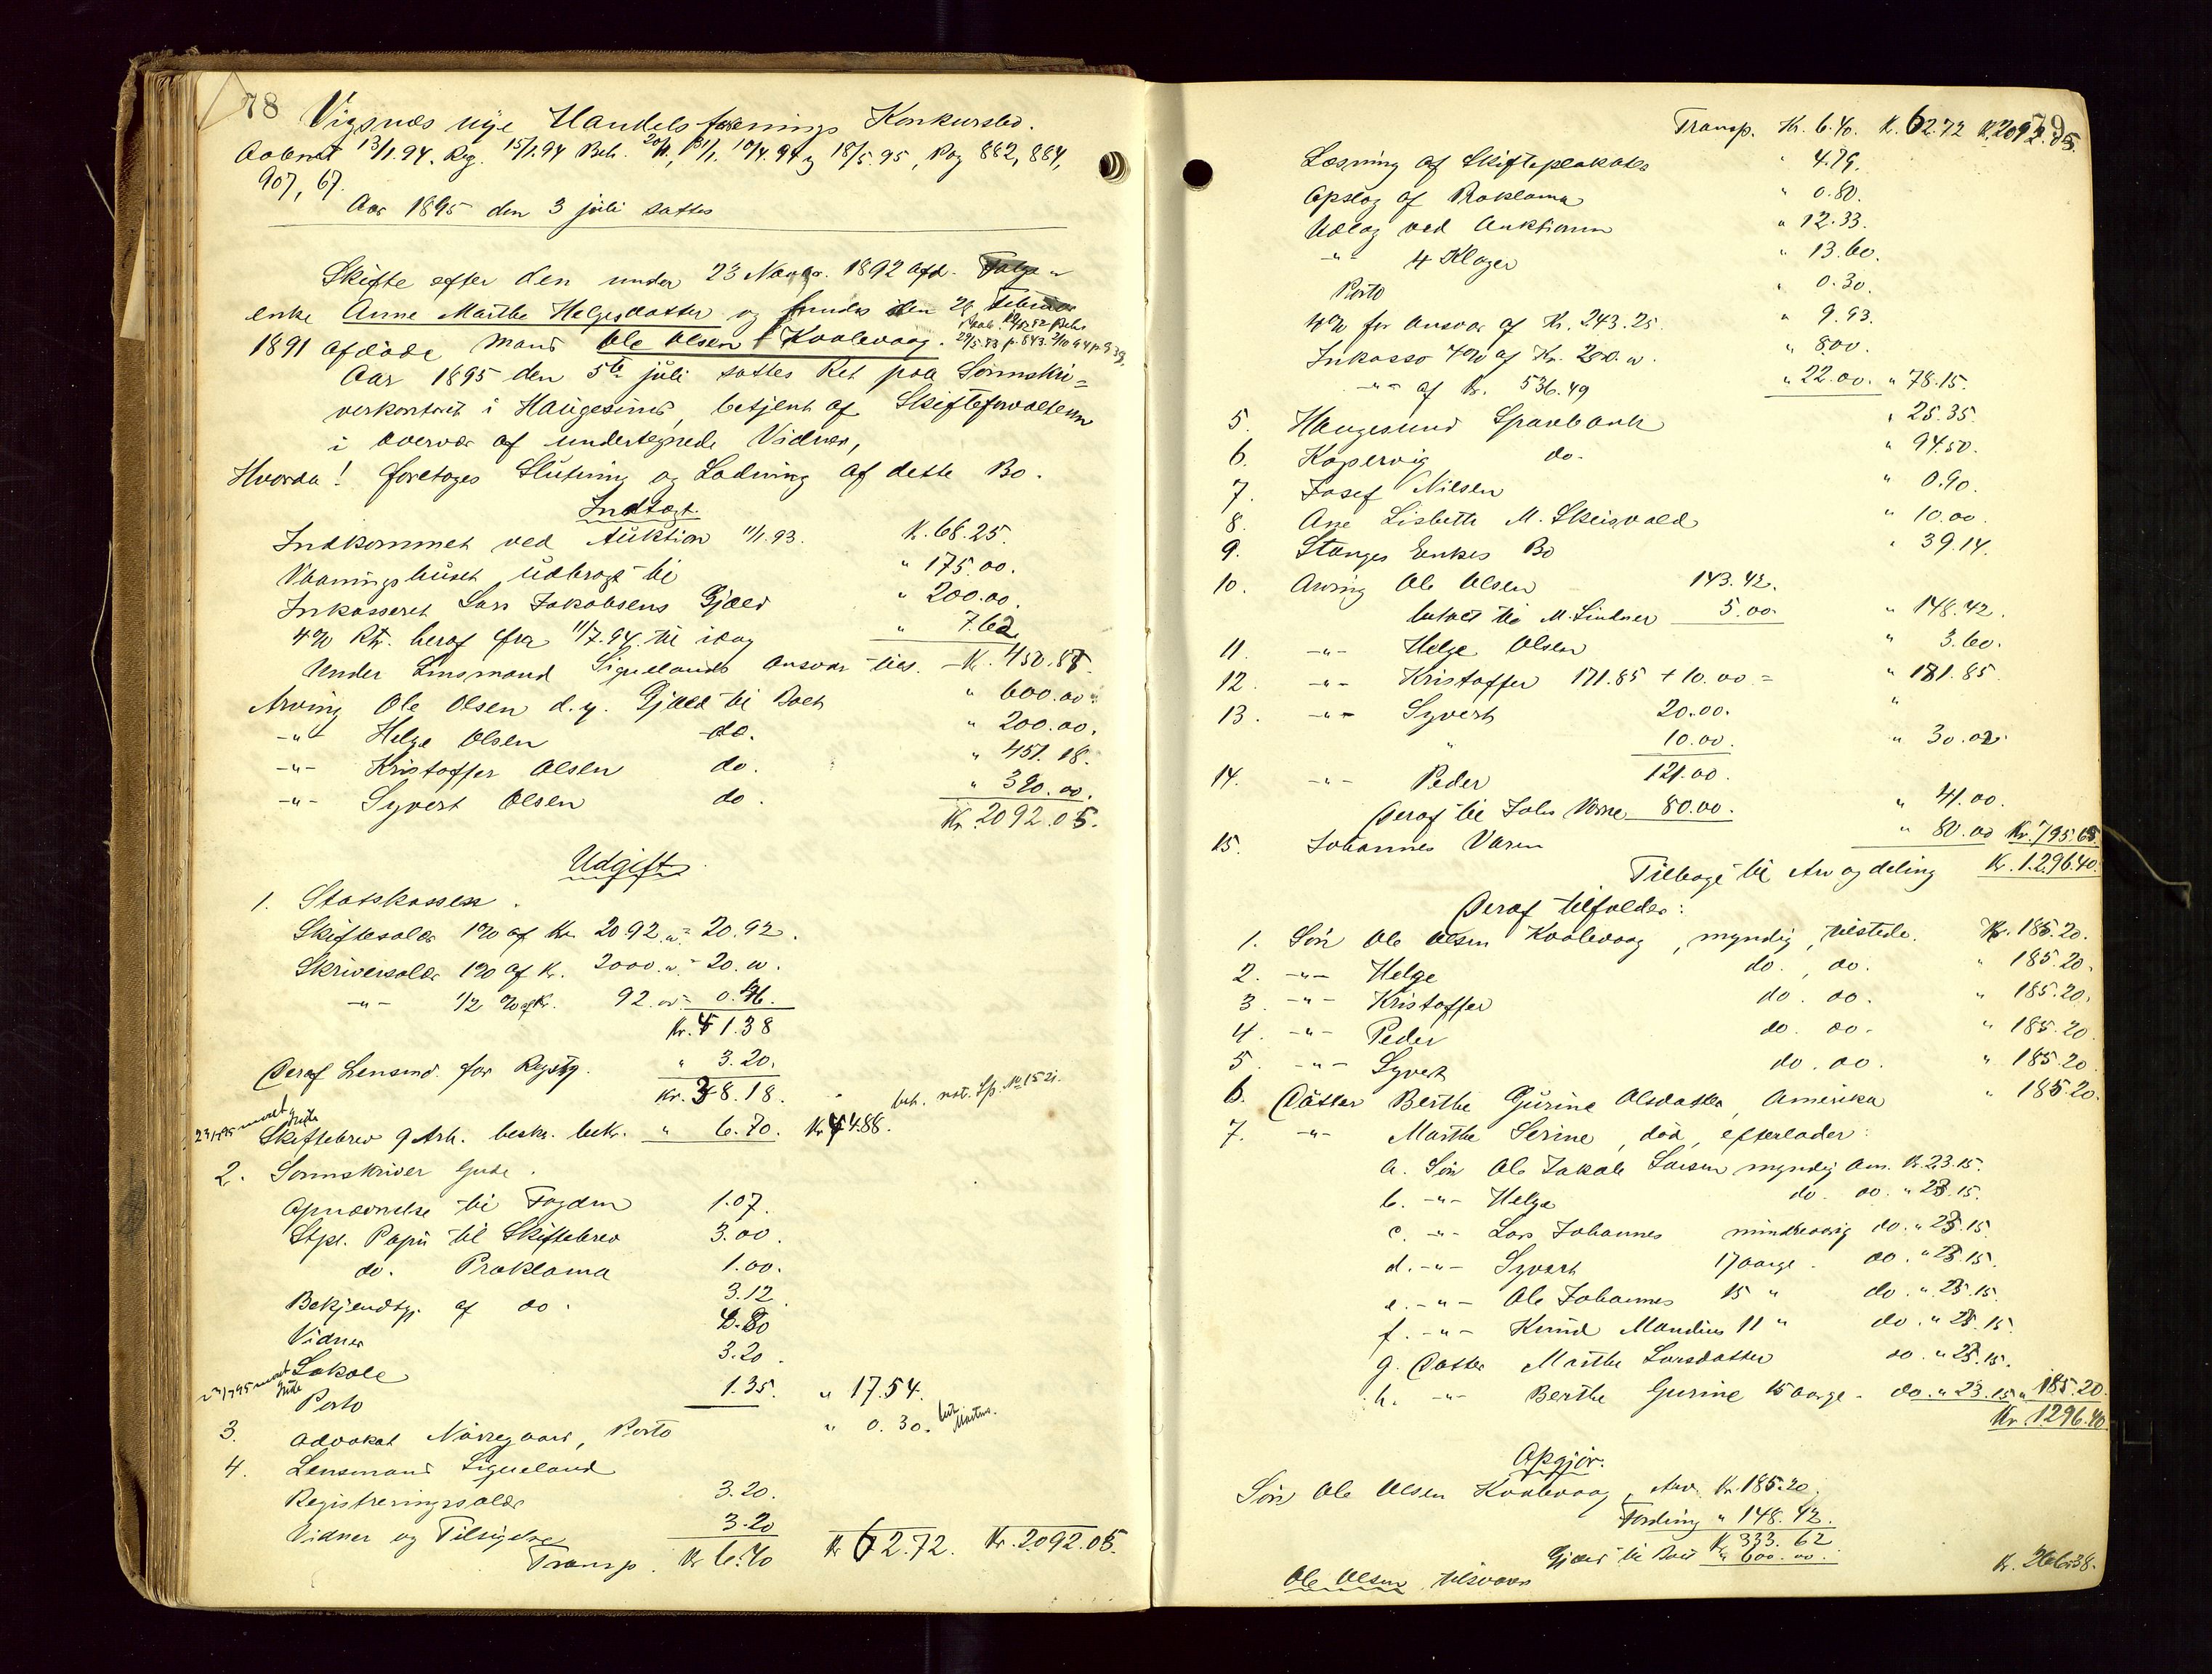 78
Vigsnæs nye Handelsforenings Konkursbo.
Aabnet 13/1.94. Reg. 15/1.94 Beh. 20/1, 31/1, 10/4.94 og 18/5.95, Pag 882, 884,
907, 67.
Aar 1895 den 3 juli sattes
Skifte efter den under 23 Novbr. 1892 afd.
enke Anne Marthe Helgesdatter og hendes den 26 Februar
1891 afdøde Mand Ole Olsen Kvalevaag.
Aar 1895 den 5te juli sattes Ret paa Sorenskri=
verkontoret i Haugesund, betjent af Skifteforvalteren
i overvær af undertegnede Vidner,
Hvorda! foretoges Slutning og Lodning af dette Bo.
Indtægt.
Indkommet ved Auktion 11/1.93. K. 68.25.
Vaaningshuset udbragt til " 175.00.
Inkasseret Lars Jakobsens Gjæld " 200.00.
4% Rtr. heraf fra 11/7.94 til idag " 7.62
Under Lensmand Siquelands Ansvar tils. K. 450.87.
Arving Ole Olsen d.y. Gjæld til Boet " 600.00.
-"- Helge Olsen do. " 200.00.
-"- Kristoffer Olsen do. " 451.18.
-"- Syvert Olsen do. " 390.00.
Kr. 2092.05.
Udgift.
1. Statskassen.
Skiftesalær 1% af Kr. 2092.00 = 20.92.
Skriversalær 1% af Kr. 2000.00 = 20.00.
-"- 1/2 % af Kr. 92.00 = 0.46.
Kr. 41.38
Deraf Lensmd. for Regstg. " 3.20.
Kr. 38.18.
Skiftebrev 9 Ark. beskr. bekr. " 6.70. Kr. 44.88.
2. Sorenskriver Gude.
Opnævnelse til Fogden 1.07.
Stpl. Papir til Skiftebrev 3.00.
do. Proklama 1.00.
Bekjendtg. af do. 3.12.
Vidner 4.80
Lokale 3.20.
Porto 1.35. " 17.54.
3. Advokat Nørregaard, Porto " 0.30.
4. Lensmand Siqueland
Registreringssalær 3.20.
Vidner og Tilsigelse 3.20
Transp. Kr. 6.40 Kr. 62.72. Kr. 2092.05.
79
Transp. Kr. 6.40. K. 62.72 K. 2092.05.
Læsning af Skifteplakater " 4.79.
Opslag af Proklama " 0.80.
Udlæg ved Auktionen " 12.33.
-"- 4 Klager " 13.60.
Porto " 0.30.
4% for Ansvar af Kr. 243.25. " 9.93.
Inkasso 4% af Kr. 200.00. " 8.00.
-"- af Kr. 536.49 " 22.00. " 78.15.
5. Haugesund Sparebank " 25.35.
6. Kopervig do. " 94.50.
7. Josef Nilsen " 0.90.
8. Ane Lisbeth M. Skeisvold " 10.00.
9. Stanges Enkes Bo " 39.14.
10. Arving Ole Olsen 143.42.
betalt til M. Lindner 5.00. " 148.42.
11. -"- Helge Olsen " 3.60.
12. -"- Kristoffer 171.85 + 10.00 = " 181.85.
13. -"- Syvert 20.00. "
" 10.00. " 30.00.
14. -"- Peder 121.00.
Deraf til Johs Vorre 80.00. " 41.00.
15. Johannes Varen " 80.00 Kr. 795.65
Tilbage til Arv og deling K. 1296.40.
Deraf tilfalder:
1. Søn Ole Olsen Kvalevaag, myndig, tilstede. Kr. 185.20.
2. -"- Helge do., do. " 185.20.
3. -"- Kristoffer do. do. " 185.20.
4. -"- Peder do. do. " 185.20.
5. -"- Syvert do. do. " 185.20.
6. Datter Berthe Gurine Olsdatter, Amerika " 185.20.
7. -"- Marthe Serine, død, efterlader:
a. Søn Ole Jakob Larsen myndig Am. K. 23.15.
b. -"- Helge do. do. " 23.15.
c. -"- Lars Johannes mindreaarig do. " 23.15.
d. -"- Syvert 17 aarge. do. " 23.15.
e. -"- Ole Johannes 15 " do. " 23.15.
f. -"- Knud Mandius 11 " do. " 23.15.
g. Datter Marthe Larsdatter do. " 23.15.
h. -"- Berthe Gurine 15 aarge. do. " 23.15 " 185.20.
Kr. 1296.40
Opgjør.
Søn Ole Olsen Kvalevaag, Arv Kr. 185.20.
Fordring " 148.42.
K. 333.62
Gjæld til Boet " 600.00.
Ole Olsen tilsvarer K. 266.38.